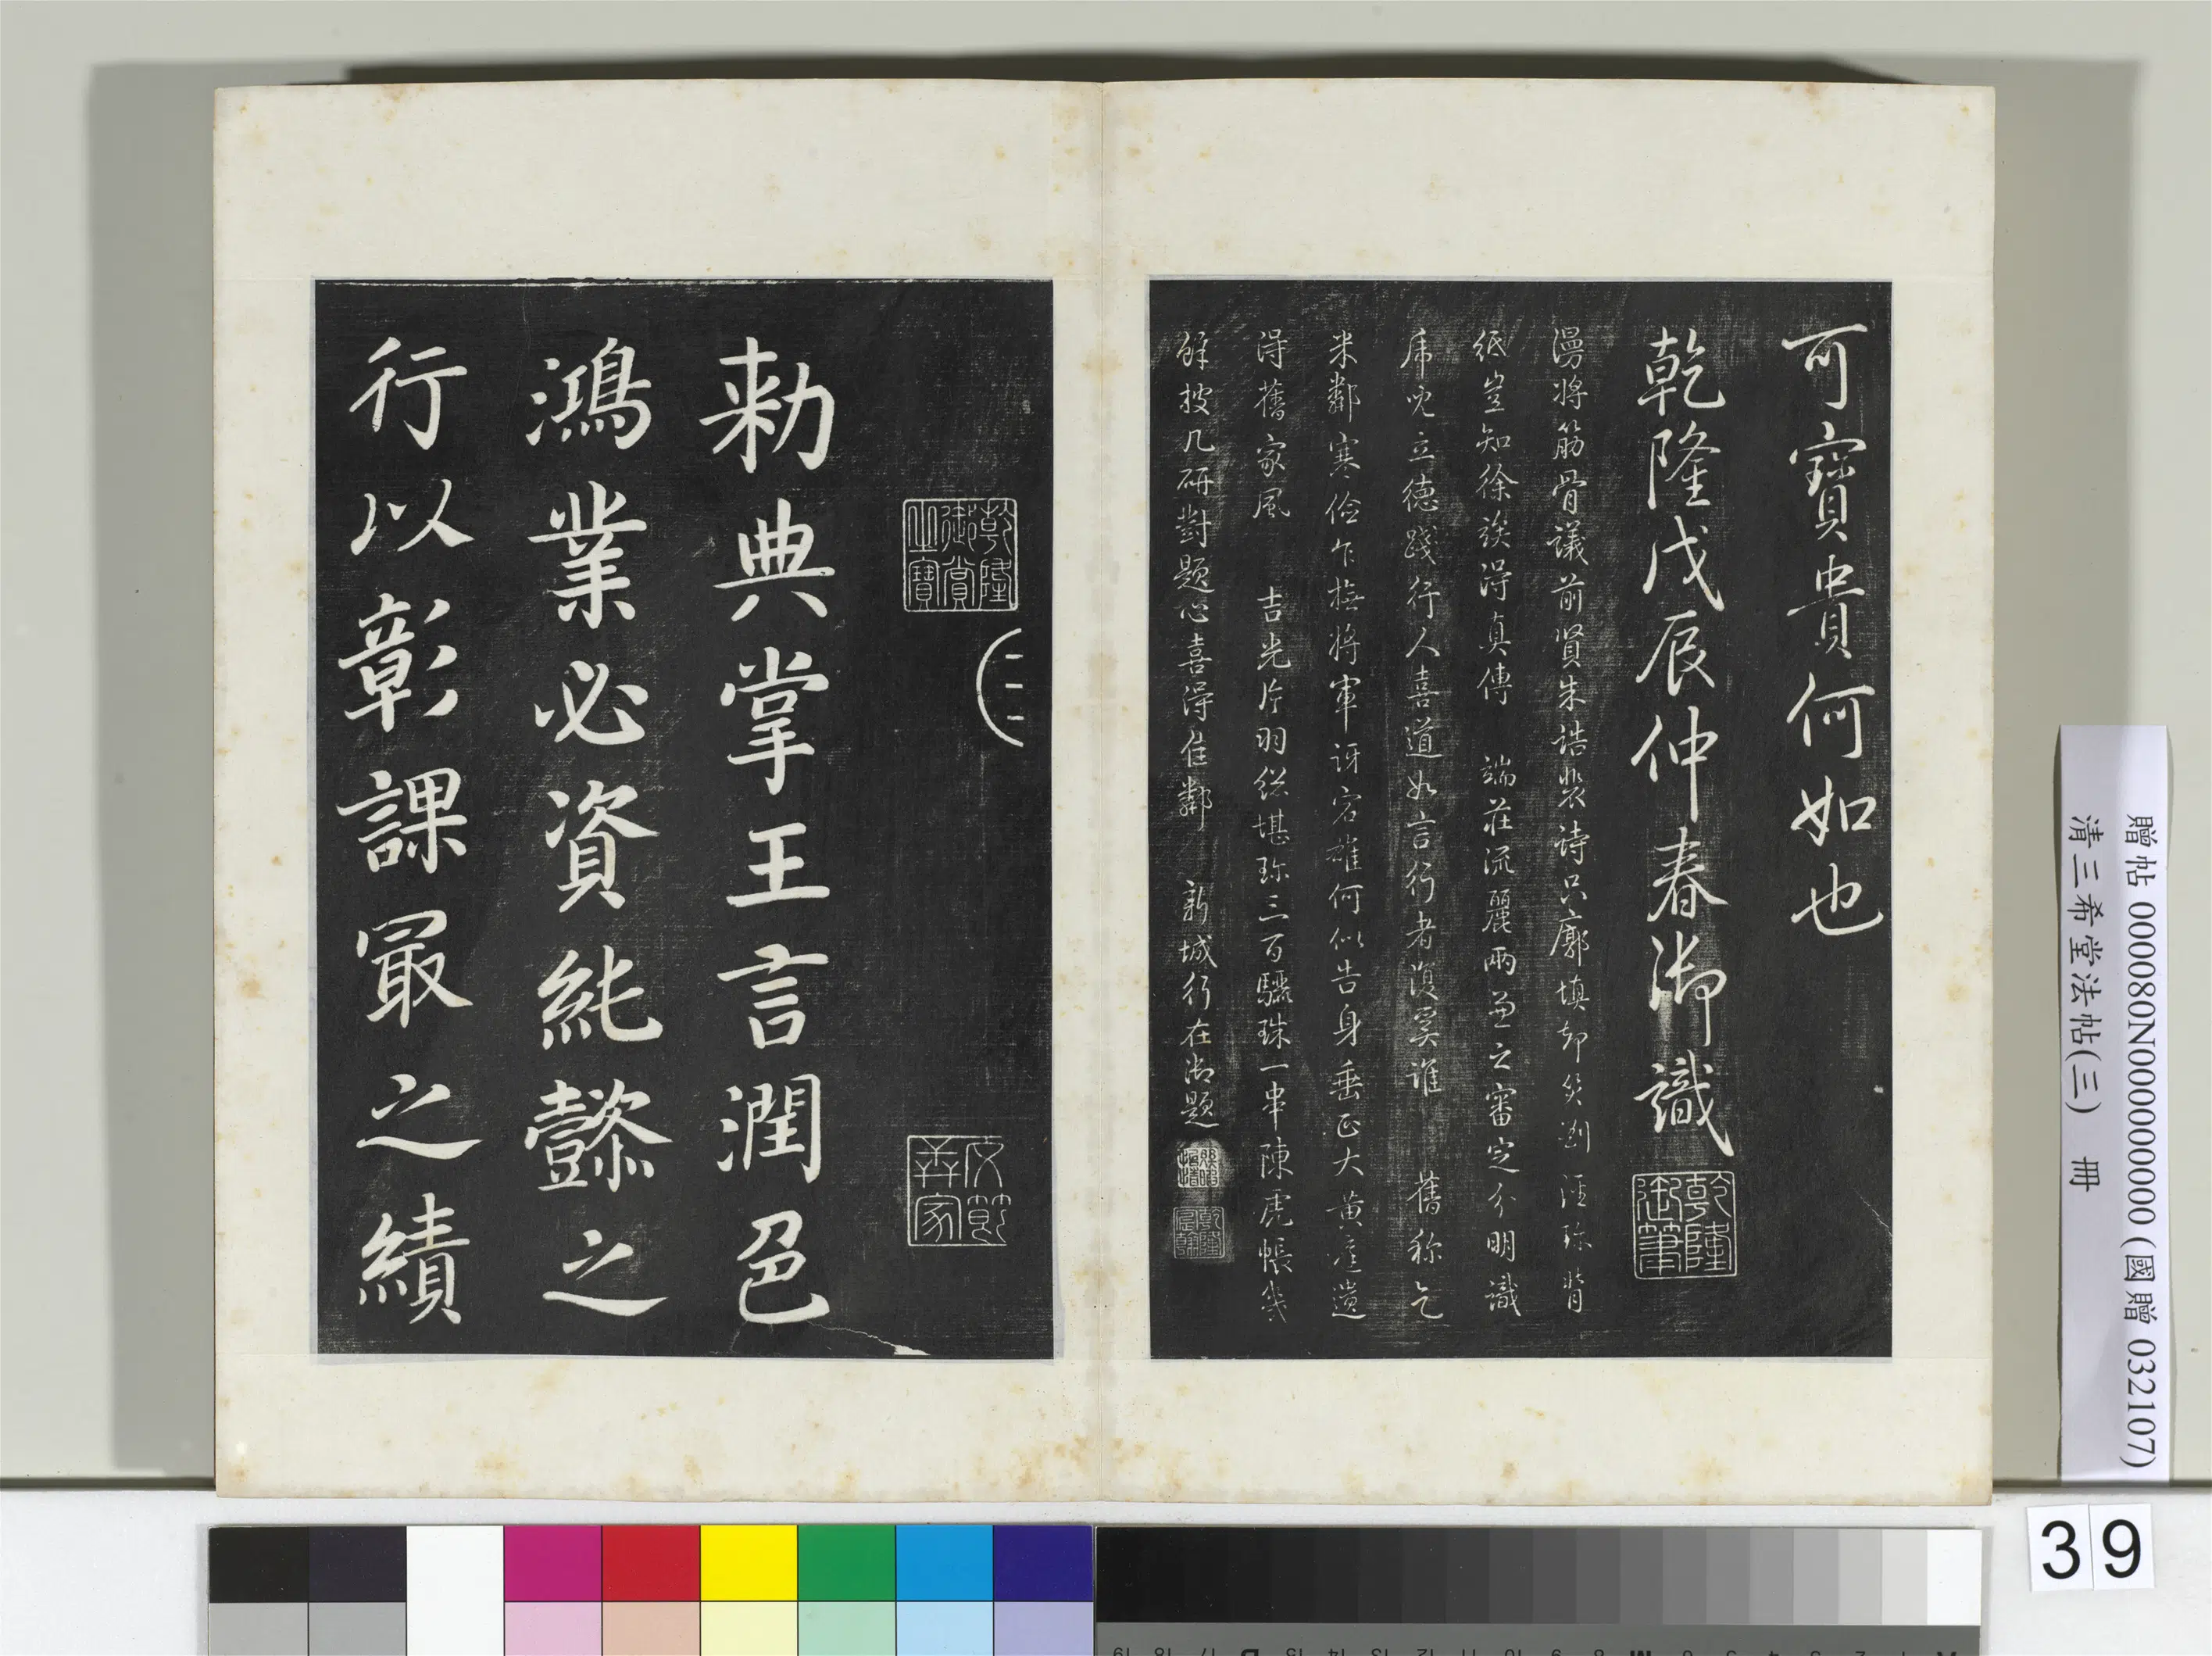 可寶貴何如也
乾隆戊辰仲春御識
乾隆御筆
漫將筋骨議前賢朱誥裴詩只廓填却笑劉涇珍背
紙豈知徐浩得真傳 端莊流麗兩兼之審定分明識
席 立德踐行人喜道如言行者復奚誰 舊稱乞
米鄰寒儉乍撫將軍訝容雄何似告身垂正大黄 遺
得舊家風 吉光片羽 堪珍三百驪珠一串陳虎帳幾
餘披几研對題心喜得佳鄰 新城行在御題
乾隆御賞之寶
三
勅典掌王言潤色
鴻業必資純懿之
行以彰課最之績
贈帖 000080N000000000 (國贈 032107)
清三希堂法帖(三) 冊
39